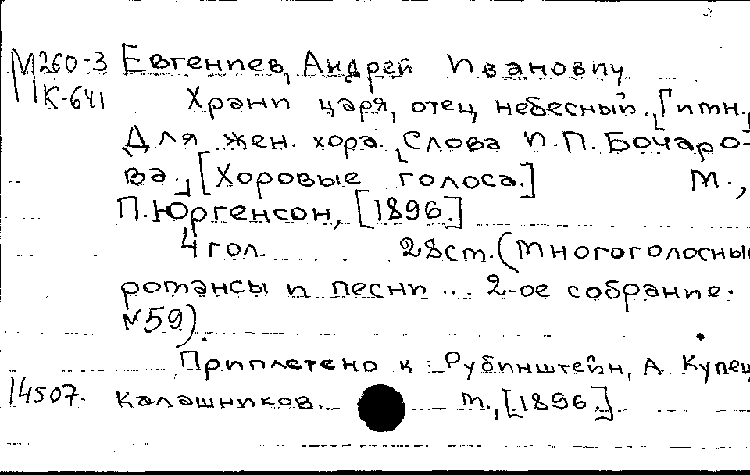 М260-3 Евгениев, Андрей Иванович
К-641 Храни царя, отец небесный. [Гимн.
Для жен. хора. [Слова И.П. Бочаро-
ва.] [Хоровые голоса.] М.,
П. Юргенсон, [1896.]
4 гол. 28 cm. (Многоголосны
романсы и песни ... 2-ое собрание.
№59).
Приплетено к: Рубинштейн, А. Купец
14507. Калашников. М., [1896.]